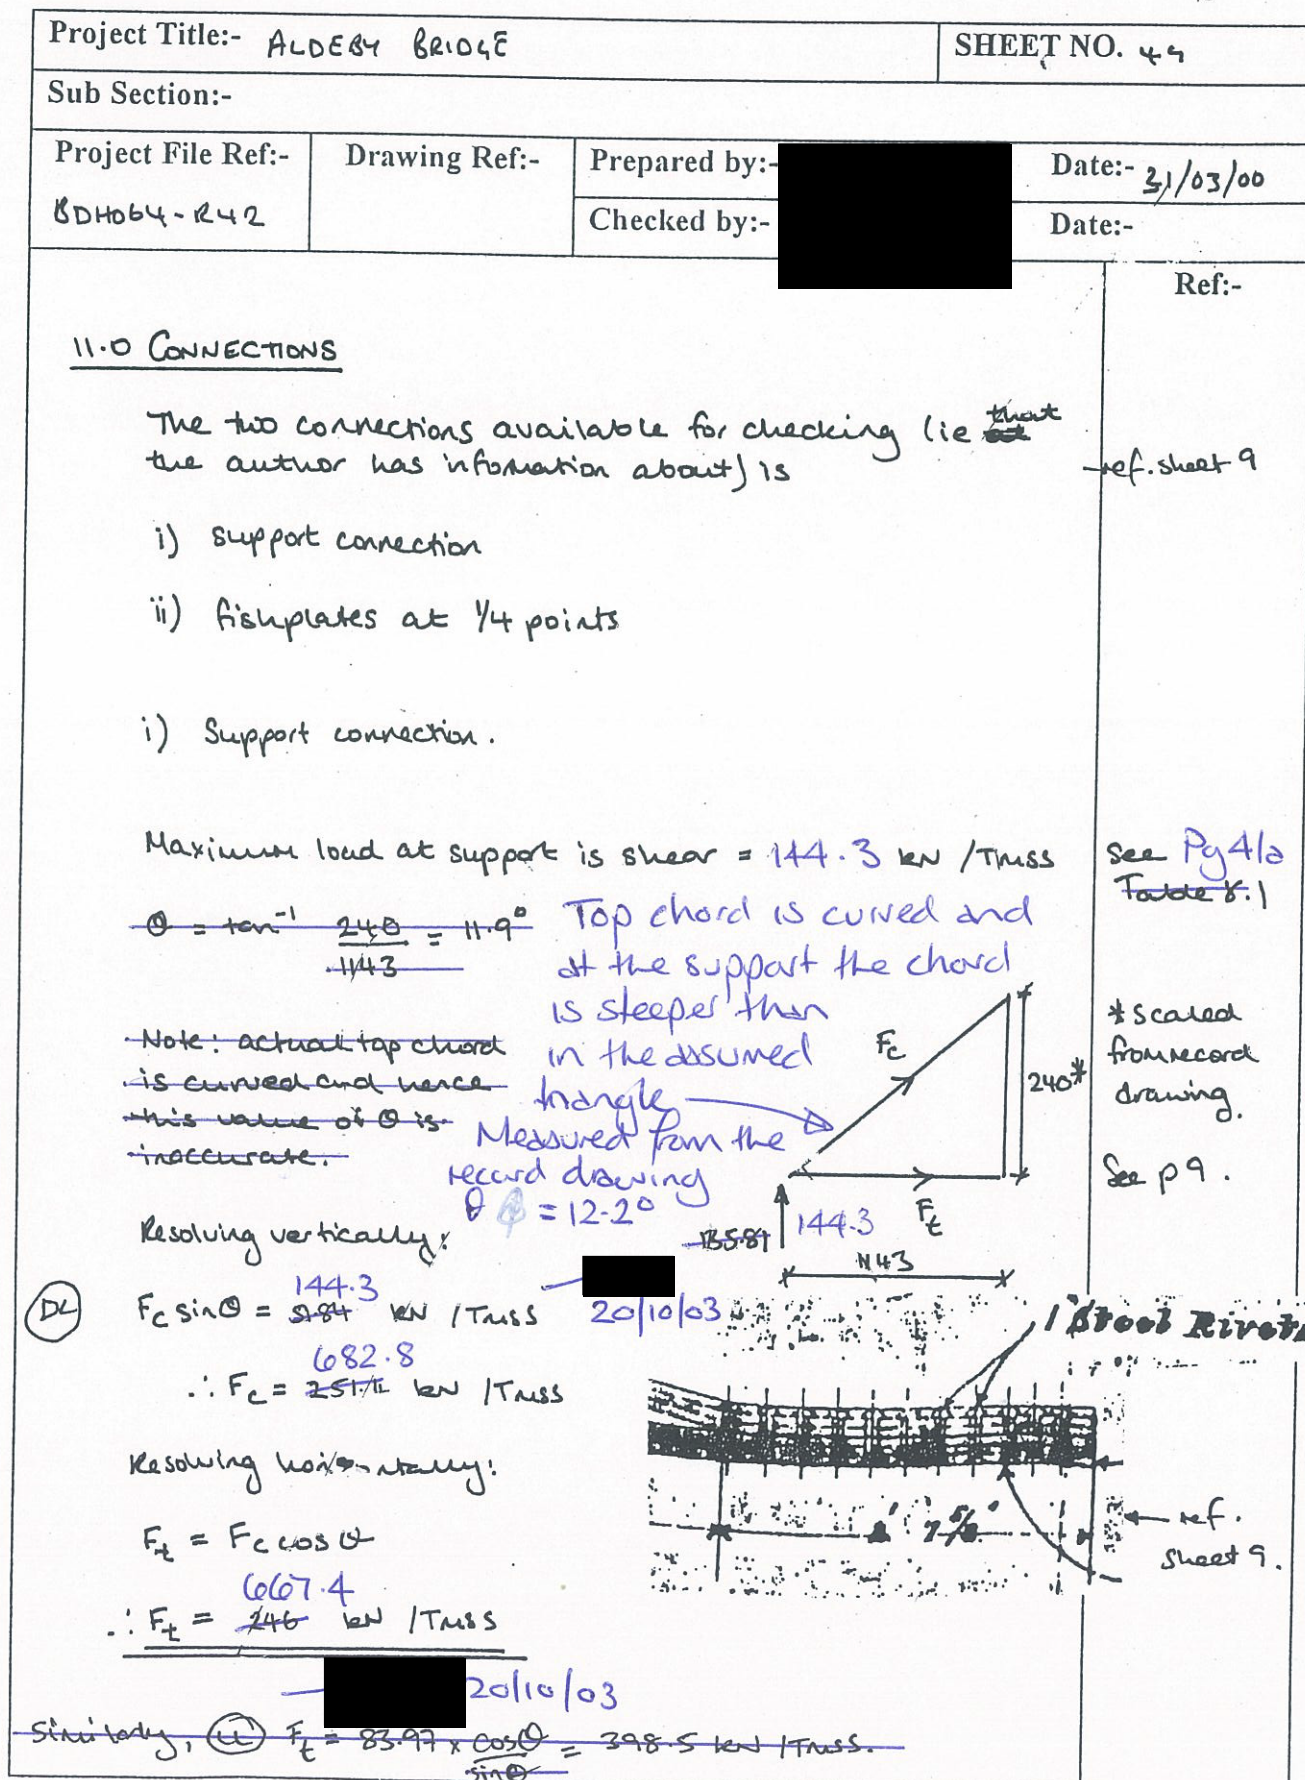 Project Title:- ALDEBY BRIDGE
SHEET NO. 49
Sub Section:-
Project File Ref:-
BDH064-R42
Drawing Ref:-
Prepared by:-
Date:- 31/03/00
Checked by:-
Date:-
Ref:-
11.0 CONNECTIONS
The two connections available for checking (ie that
the author has information about) is
ref. sheet 9
i) support connection
ii) fishplates at 1/4 points
i) Support connection.
Maximum load at support is shear = 144.3 kN /Truss
see Pg 41a
Table 8.1
θ = tan⁻¹ 240/1143 = 11.9°
Top chord is curved and
at the support the chord
is steeper than
in the assumed
triangle
Measured from the
record drawing
θ = 12.2°
Note: actual top chord
is curved and hence
this value of θ is
inaccurate.
Fc
240*
Ft
135.81
144.3
1143
*scaled
from record
drawing.
See p 9.
Resolving vertically:
DL
Fc sinθ = 51.84 144.3 kN /Truss
20/10/03
∴ Fc = 682.8 kN /Truss
Steel Rivets
Resolving horizontally:
Ft = Fc cos θ
∴ Ft = 246 667.4 kN /Truss
ref.
sheet 9.
20/10/03
Similarly, LL Ft = 83.97 x cosθ/sinθ = 398.5 kN /Truss.